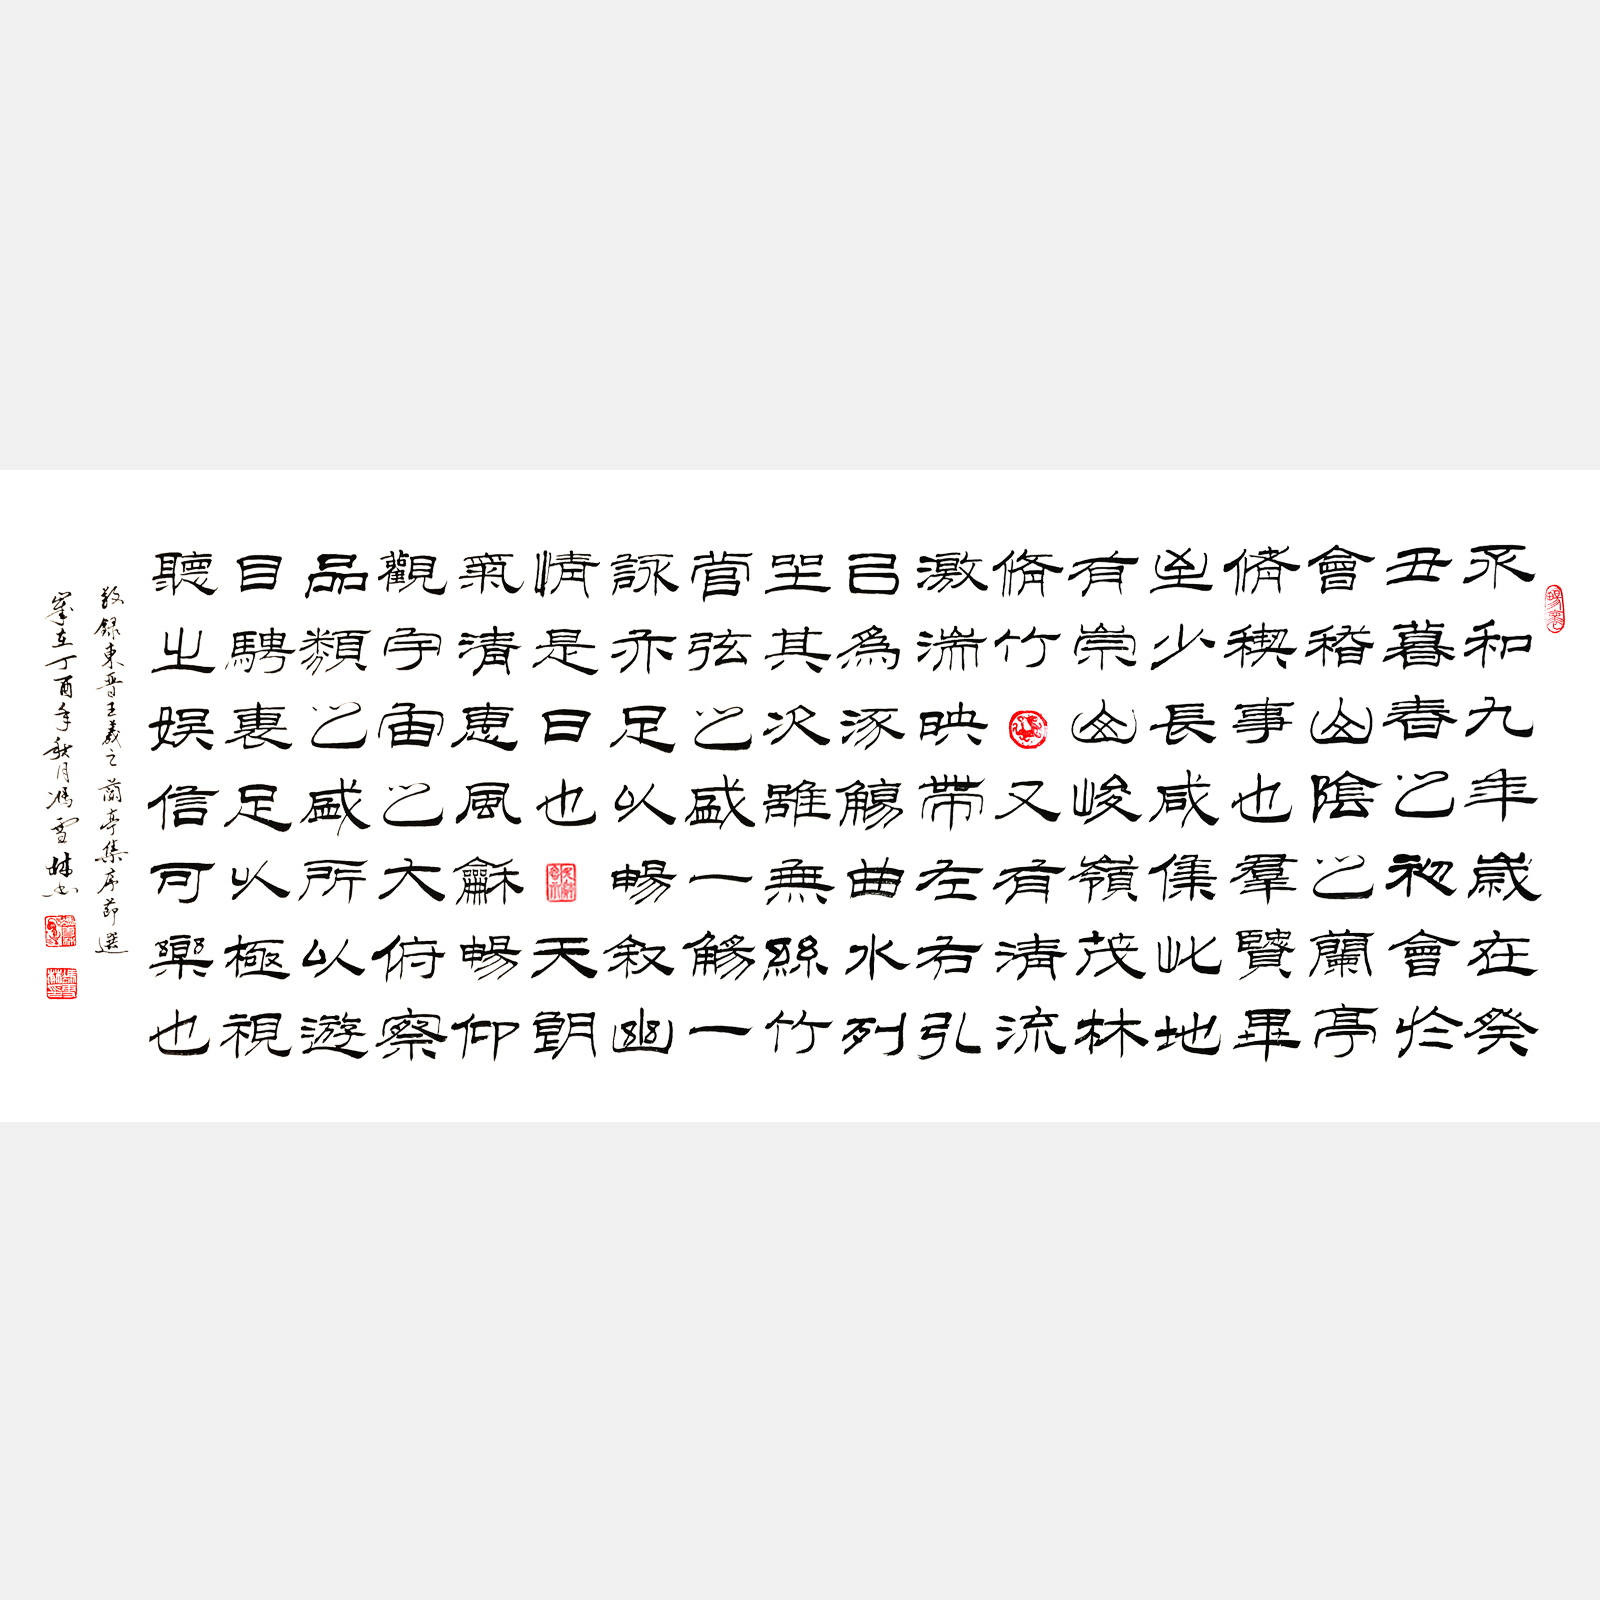 永和九年歲在癸
丑暮春之初會於
會稽山陰之蘭亭
脩禊事也羣賢畢
至少長咸集此地
有崇山峻嶺茂林
脩竹又有清流
激湍映帶左右引
㠯為流觴曲水列
坐其次雖無絲竹
管弦之盛一觴一
詠亦足以暢叙幽
情是日也天朗
氣清惠風龢暢仰
觀宇宙之大俯察
品類之盛所以遊
目騁褱足以極視
聽之娛信可樂也
敬録東晋王羲之蘭亭集序節選
歲在丁酉年秋月馮雪林书